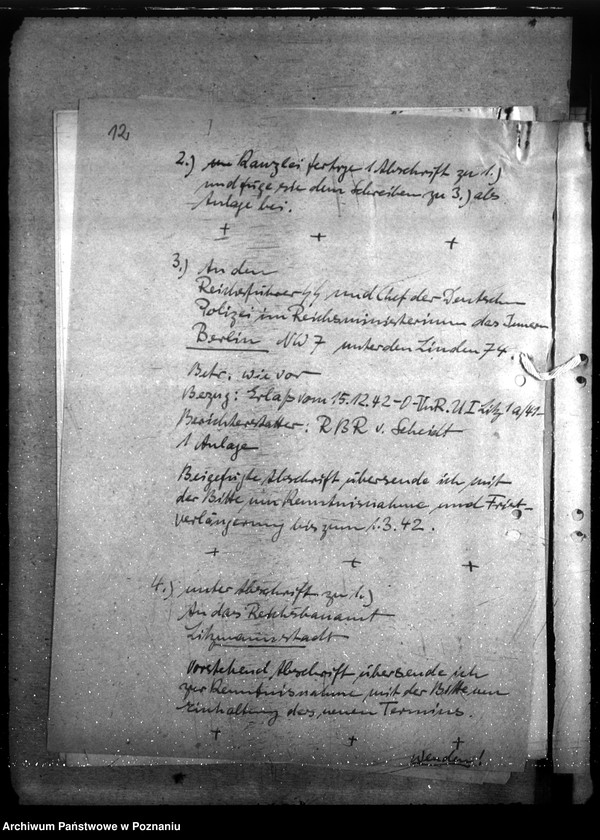 12
2.) Kanzlei fertige 1 Abschrift zu 1.)
und füge sie dem Schreiben zu 3.) als
Anlage bei.
+ + +
3.) An den
Reichsführer SS und Chef der Deutschen
Polizei im Reichsministerium des Innern
Berlin NW 7 unter den Linden 74.
Betr.: wie vor
Bezug: Erlaß vom 15.12.42-O-
Berichterstatter: R B R v. Scheidt
1 Anlage
Beigefügte Abschrift übersende ich mit
der Bitte um Kenntnisnahme und Frist-
verlängerung bis zum 1.3.42.
+ + +
4.) unter Abschrift zu 1.)
An das Reichsbauamt
Litzmannstadt
Vorstehend Abschrift übersende ich
zur Kenntnisnahme mit der Bitte um
Einhaltung des neuen Termins.
+ + +
Wenden!
Archiwum Państwowe w Poznaniu